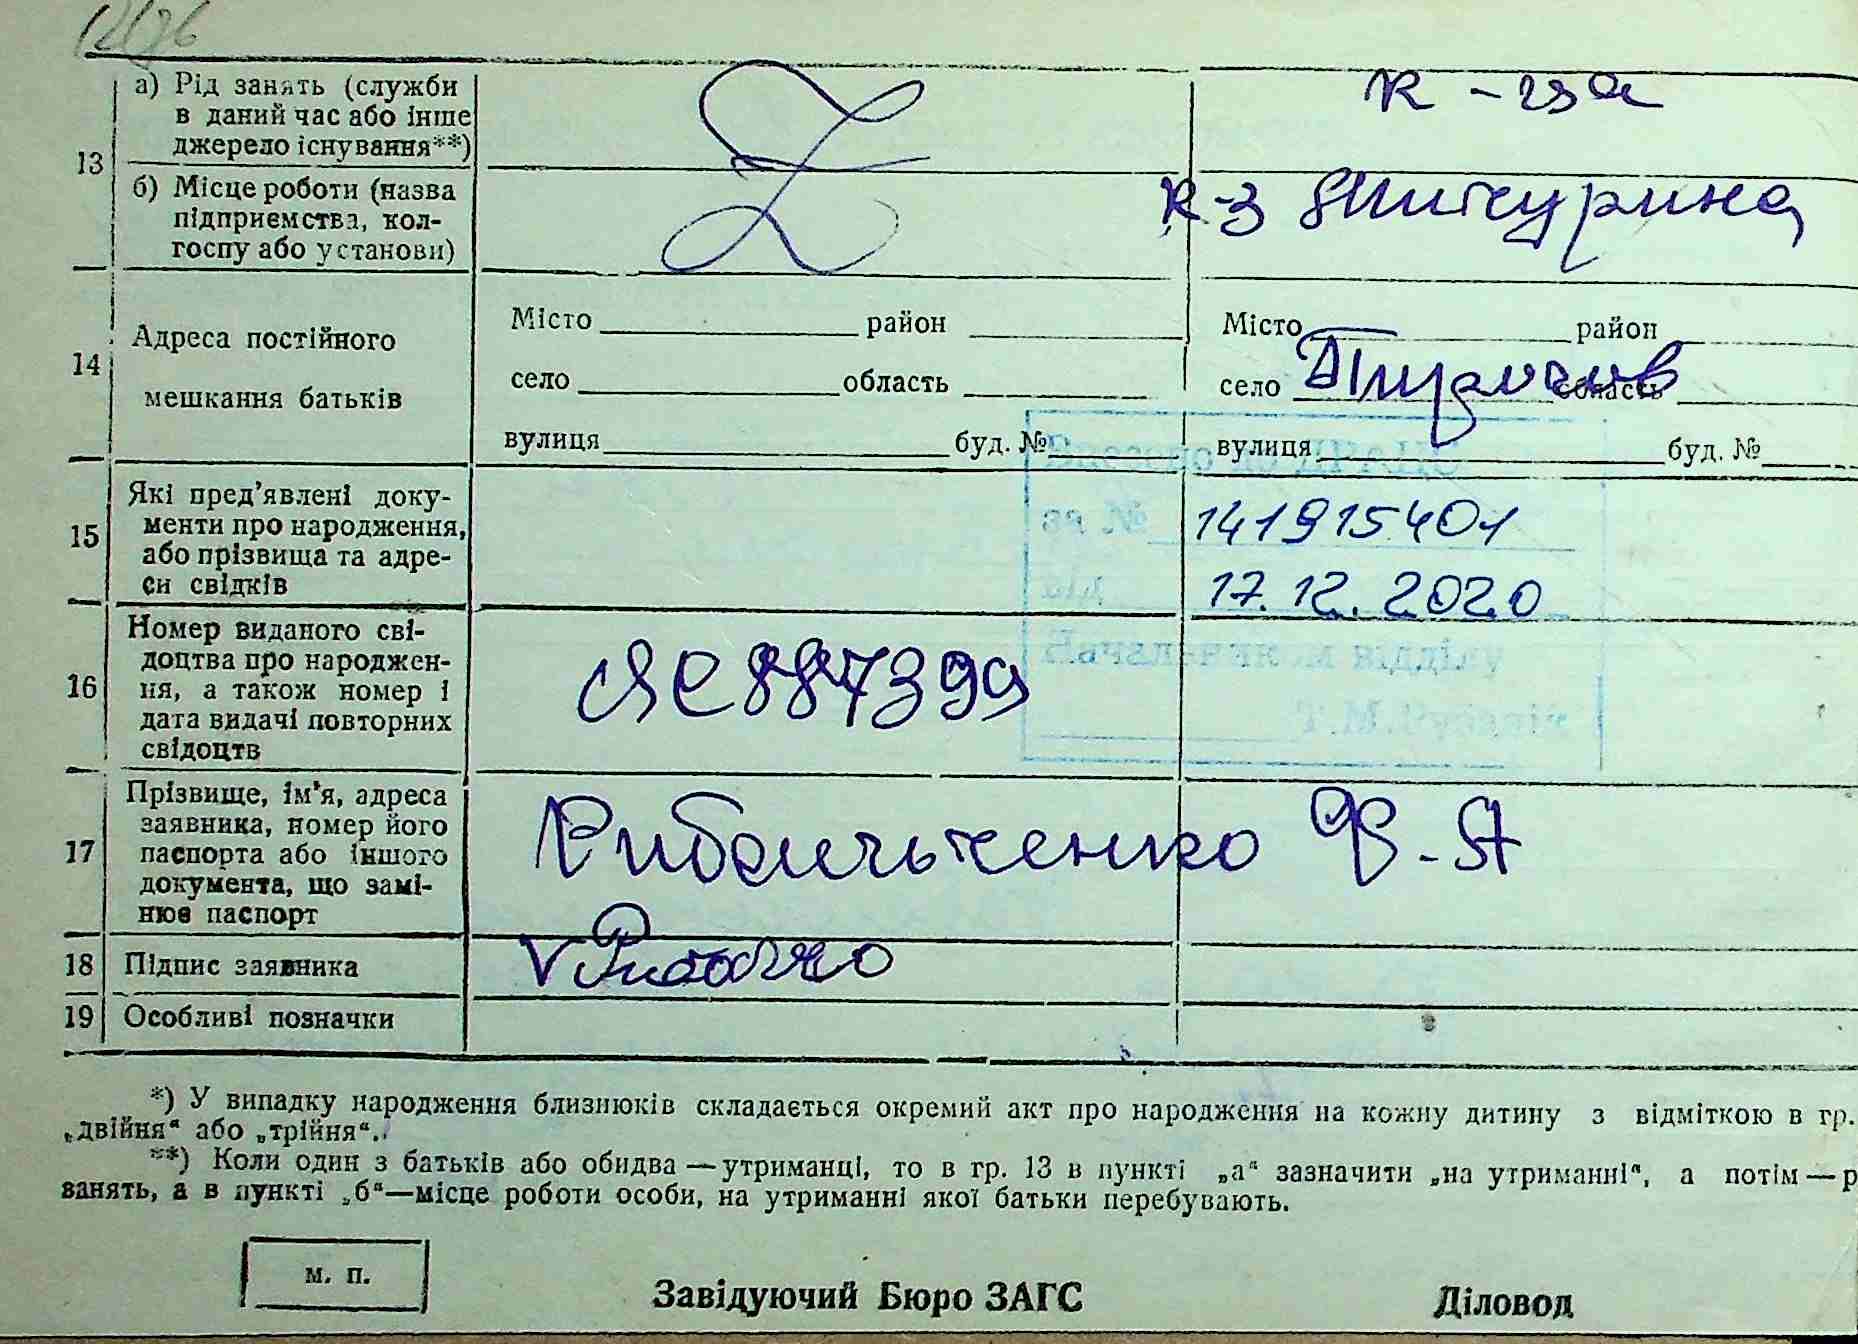 13
а) Рід занять (служби
в даний час або інше
джерело існування**)
к-ця
б) Місце роботи (назва
підприємства, кол-
госпу або установи)
к-з Мичурина
14
Адреса постійного
мешкання батьків
Місто район
село область
вулиця буд. №
Місто район
село область
вулиця буд. №
15
Які пред’явлені доку-
менти про народження,
або прізвища та адре-
си свідків
141915401
17.12.2020
16
Номер виданого сві-
доцтва про народжен-
ня, а також номер і
дата видачі повторних
свідоцтв
ЯС 887399
17
Прізвище, ім’я, адреса
заявника, номер його
паспорта або іншого
документа, що замі-
нює паспорт
Рибальченко Ф. Я
18 Підпис заявника
V
19 Особливі позначки
*) У випадку народження близнюків складається окремий акт про народження на кожну дитину з відміткою в гр.
„двійня“ або „трійня“.
**) Коли один з батьків або обидва — утриманці, то в гр. 13 в пункті „а“ зазначити „на утриманні“, а потім — р
занять, а в пункті „б“ — місце роботи особи, на утриманні якої батьки перебувають.
м. п.
Завідуючий Бюро ЗАГС
Діловод